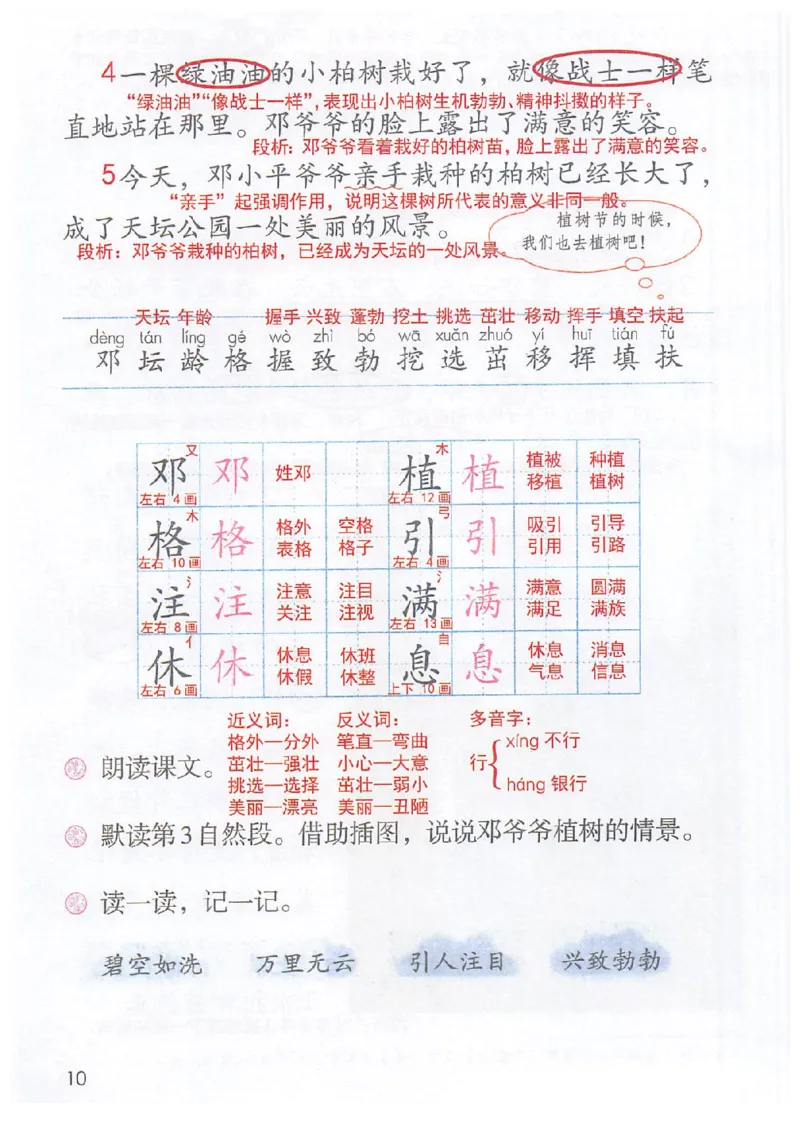 4一棵绿油油的小柏树栽好了，就像战士一样笔
“绿油油”“像战士一样”，表现出小柏树生机勃勃、精神抖擞的样子。
直地站在那里。邓爷爷的脸上露出了满意的笑容。
段析：邓爷爷看着栽好的柏树苗，脸上露出了满意的笑容。
5今天，邓小平爷爷亲手栽种的柏树已经长大了，
“亲手”起强调作用，说明这棵树所代表的意义非同一般。
成了天坛公园一处美丽的风景。
段析：邓爷爷栽种的柏树，已经成为天坛的一处风景。
植树节的时候，
我们也去植树吧！
天坛 年龄 握手 兴致 蓬勃 挖土 挑选 茁壮 移动 挥手 填空 扶起
dèng tán líng gé wò zhì bó wā xuǎn zhuó yí huī tián fú
邓 坛 龄 格 握 致 勃 挖 选 茁 移 挥 填 扶
又 木
邓 邓 姓邓 植 植 植被 种植
移植 植树
左右 4画 左右 12画
木 弓
格 格 格外 空格 引 引 吸引 引导
表格 格子 引用 引路
左右 10画 左右 4画
氵 氵
注 注 注意 注目 满 满 满意 圆满
关注 注视 满足 满族
左右 8画 左右 13画
亻 自
休 休 休息 休班 息 息 休息 消息
休假 休整 气息 信息
左右 6画 上下 10画
近义词： 反义词： 多音字：
格外—分外 笔直—弯曲 xíng 不行
朗读课文。 茁壮—强壮 小心—大意 行
挑选—选择 茁壮—弱小 háng 银行
美丽—漂亮 美丽—丑陋
默读第3自然段。借助插图，说说邓爷爷植树的情景。
读一读，记一记。
碧空如洗 万里无云 引人注目 兴致勃勃
10